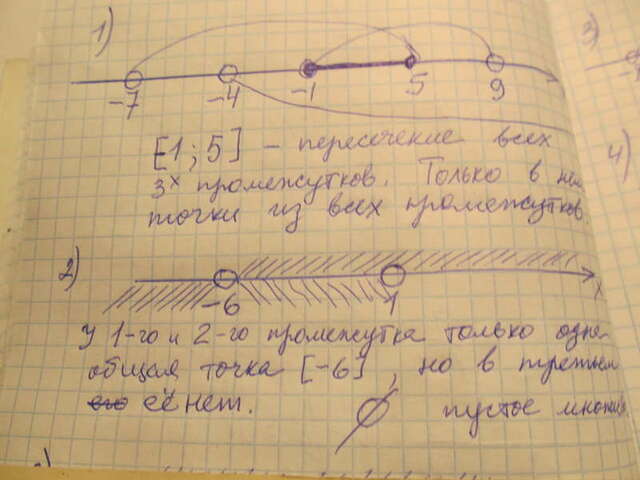 1)
3)
-7 -4 -1 5 9
[1; 5] - пересечение всех
3х промежутков. Только в нём
точки из всех промежутков.
4)
2)
-6 1 x
У 1-го и 2-го промежутка только одна
общая точка [-6], но в третьем
её нет. ∅ пустое множ